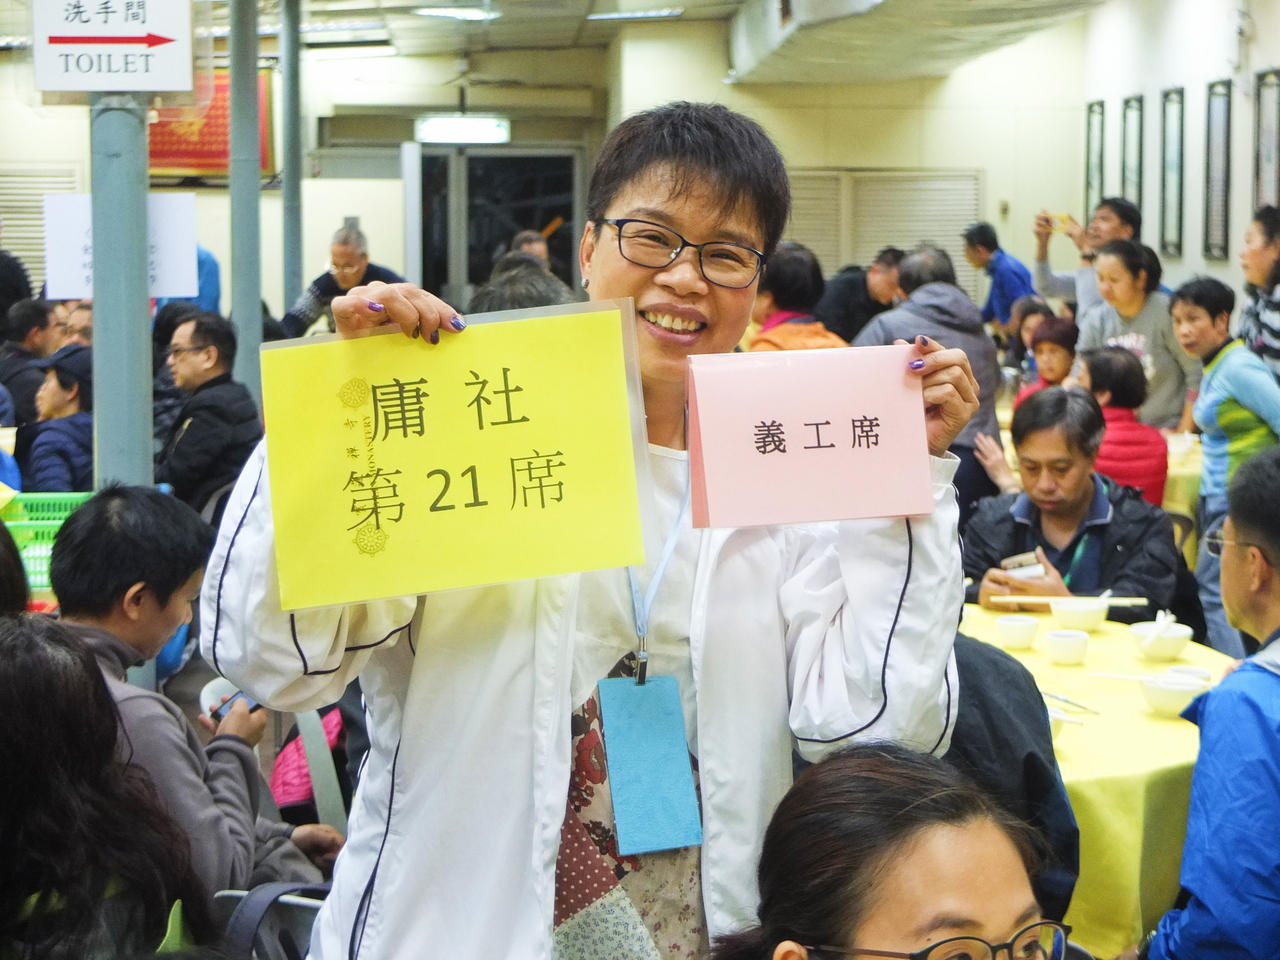 洗手間
TOILET
庸社
第21席
義工席